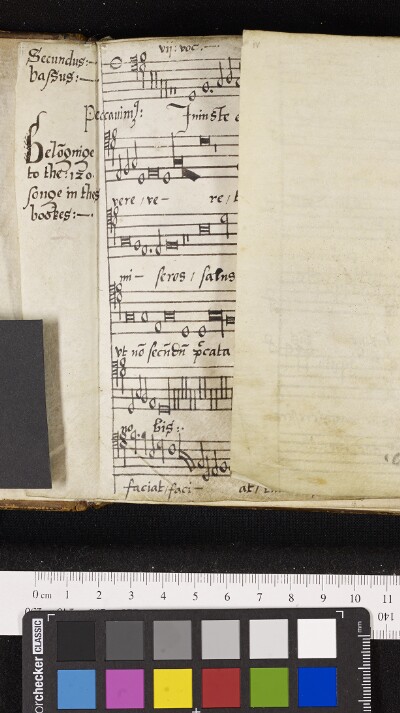 Secundus:-
bassus:-
belōginge
to the: 120.
songe in thes
bookes:-.
vij: voc:-
Peccavim9: Iniuste
vere / ve- re /
mi- seros / salus
vt nō secūdū pccata
no bis:
faciat / faci- at /
0 cm 1 2 3 4 5 6 7 8 9 10 11
mm
colorchecker CLASSIC